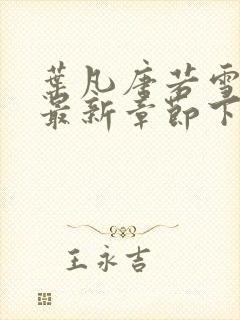 葉凡唐若雪
最新章節下
王永吉